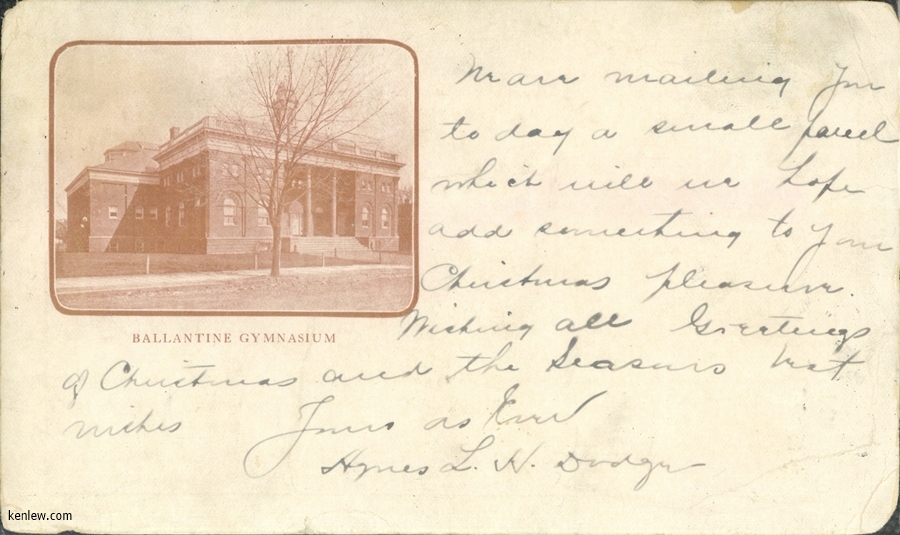 We are mailing you
to day a small parcel
which will we hope
add something to your
Christmas pleasure.
BALLANTINE GYMNASIUM
Wishing all Greetings
of Christmas and the Seasons best
wishes Yours as Ever
Agnes L. H. Dodge
kenlew.com